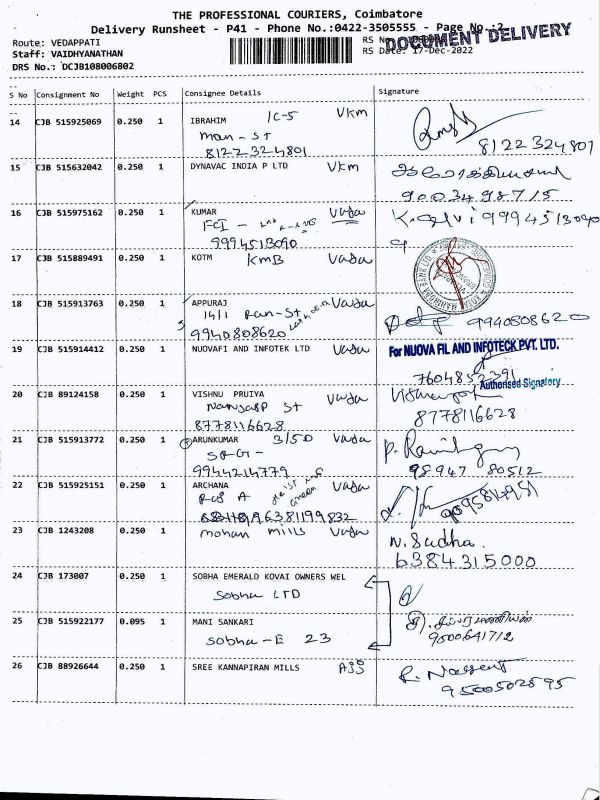 THE PROFESSIONAL COURIERS, Coimbatore
Delivery Runsheet - P41 - Phone No.:0422-3505555 - Page No.:2
DOCUMENT DELIVERY
Route: VEDAPPATI
RS Date: 17-Dec-2022
Staff: VAIDHYANATHAN
DRS No.: DCJB108006802
S No Consignment No Weight PCS Consignee Details Signature
14 CJB 515925069 0.250 1 IBRAHIM 1C-5 VKM
man-st
8122324801 8122324801
15 CJB 515632042 0.250 1 DYNAVAC INDIA P LTD VKM
9003498715
16 CJB 515975162 0.250 1 KUMAR Vada K.Selvi 9994513090
FCI -
9994513090
17 CJB 515889491 0.250 1 KOTM KMB Vada
18 CJB 515913763 0.250 1 APPURAJ Vada
14/1 Ran-St
9940808620 9940808620
19 CJB 515914412 0.250 1 NUOVAFI AND INFOTEK LTD Vada For NUOVA FIL AND INFOTECK PVT. LTD.
7604852391
Authorised Signatory
20 CJB 89124158 0.250 1 VISHNU PRUIYA Vada
St
8778116628 8778116628
21 CJB 515913772 0.250 1 ARUNKUMAR 3/50 Vada
9944214779 98947 80512
22 CJB 515925151 0.250 1 ARCHANA Vada
9638119983​2
23 CJB 1243208 0.250 1 mohan mills Vada N. Sudha.
6384315000
24 CJB 173007 0.250 1 SOBHA EMERALD KOVAI OWNERS WEL
Sobha LTD
25 CJB 515922177 0.095 1 MANI SANKARI
Sobha-E 23 9500641712
26 CJB 88926644 0.250 1 SREE KANNAPIRAN MILLS Ajj
9500502595